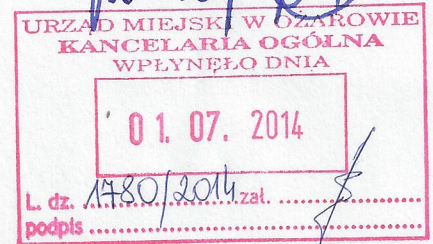 URZĄD MIEJSKI W OŻAROWIE
KANCELARIA OGÓLNA
WPŁYNĘŁO DNIA
01. 07. 2014
L. dz. 1780/2014 zał.
podpis